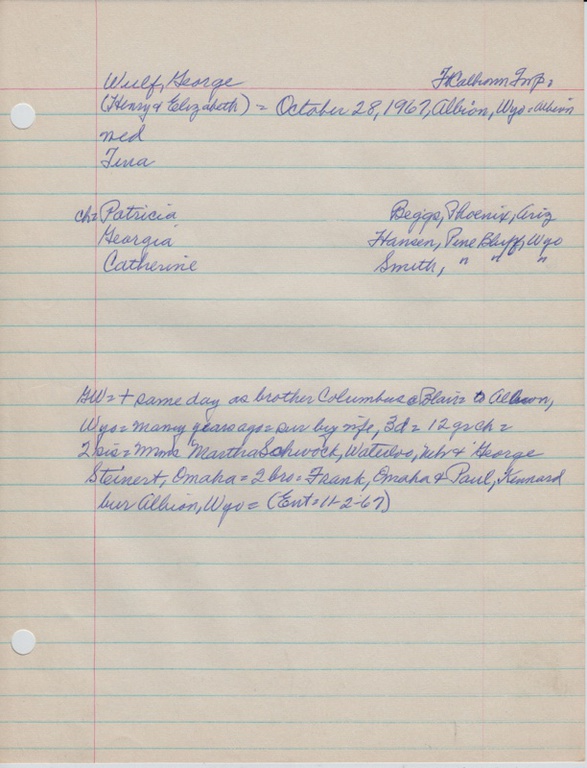 Wulf, George Ft Calhoun Twp.
(Henry & Elizabeth) = October 28, 1967, Albion, Wyo = Albion
med
Tena
ch = Patricia Beggs, Phoenix, Ariz
Georgia Hansen, Pine Bluff, Wyo
Catherine Smith, " " "
GW = + same day as brother Columbus @ Blair = to Albion,
Wyo = many years ago = sur by wife, 3d = 12 grch =
2 sis = Mmes Martha Schwock, Waterloo, Neb & George
Steinert, Omaha = 2 bro = Frank, Omaha & Paul, Kennard
bur Albion, Wyo = (Ent = 11-2-67)